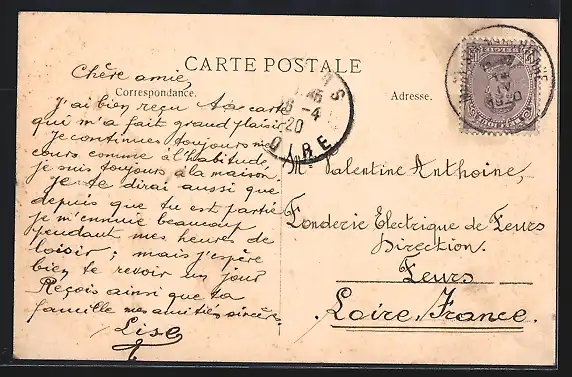 CARTE POSTALE
Correspondance.
Adresse.
Chère amie,
J'ai bien reçu ta carte
qui m'a fait grand plaisir
Je continues toujours me
cours comme à l'habitude,
je suis toujours à la maison.
Je te dirai aussi que
depuis que tu est partie
je m'ennuie beaucoup
pendant mes heures de
loisir; mais j'espère
bien te revoir un jour
Reçois ainsi que ta
famille mes amitiés sincères
Lise
Valentine Anthoine,
Fonderie Electrique de Feurs
Direction.
Feurs
Loire, France.
16-4
20
OIRE
1920